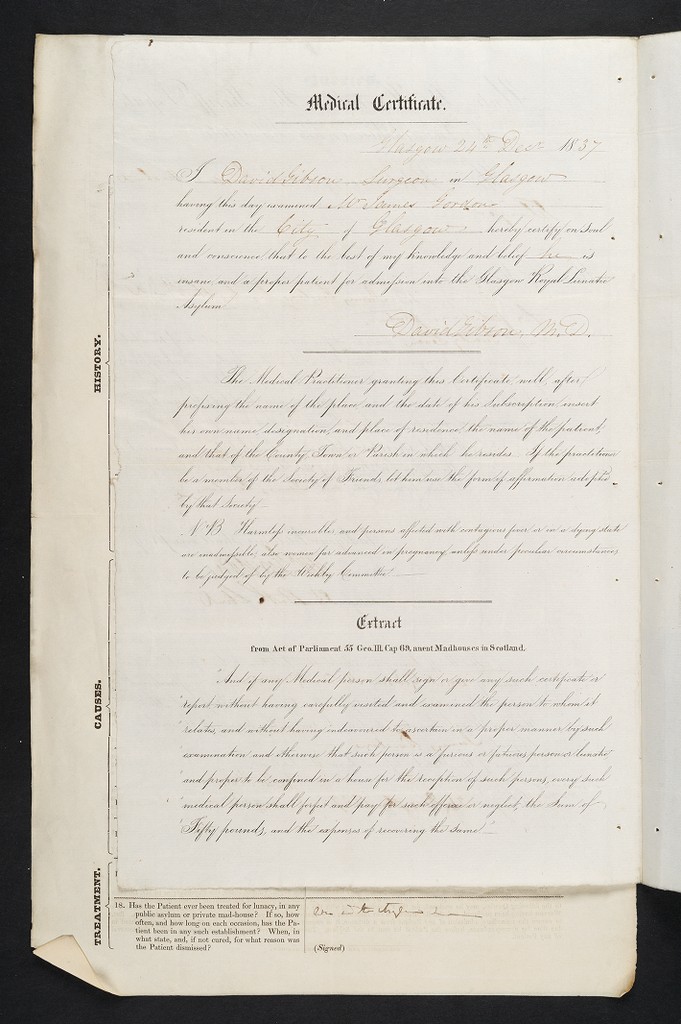 Medical Certificate.
Glasgow 24th Decr 1837
I David Gibson Surgeon in Glasgow
having this day examined Mr James Gordon
resident in the City of Glasgow hereby certify on soul
and conscience that to the best of my knowledge and belief he is
insane and a proper patient for admission into the Glasgow Royal Lunatic
Asylum
David Gibson, M.D.
The Medical Practitioner granting this Certificate, will, after
prefixing the name of the place and the date of his Subscription, insert
his own name, designation, and place of residence, the name of the patient,
and that of the County, Town or Parish in which he resides. If the practitioner
be a member of the Society of Friends, let him use the form of affirmation adopted
by that Society
N.B. Harmless incurables and persons affected with contagious fever or in a dying state
are inadmissible, also women far advanced in pregnancy, unless under peculiar circumstances,
to be judged of by the Weekly Committee
Extract
from Act of Parliament 55 Geo. III. Cap 69, anent Madhouses in Scotland.
"And if any Medical person shall sign or give any such certificate or
"report without having carefully visited and examined the person to whom it
"relates, and without having endeavoured to ascertain in a proper manner by such
"examination and otherwise that such person is a furious or fatuous person or lunatic
"and proper to be confined in a house for the reception of such persons, every such
"medical person shall forfeit and pay for such offence or neglect, the Sum of
"Fifty pounds, and the expenses of recovering the same"
HISTORY.
CAUSES.
TREATMENT.
18. Has the Patient ever been treated for lunacy, in any
public asylum or private mad-house? If so, how
often, and how long on each occasion, has the Pa-
tient been in any such establishment? When, in
what state, and, if not cured, for what reason was
the Patient dismissed?
(Signed)